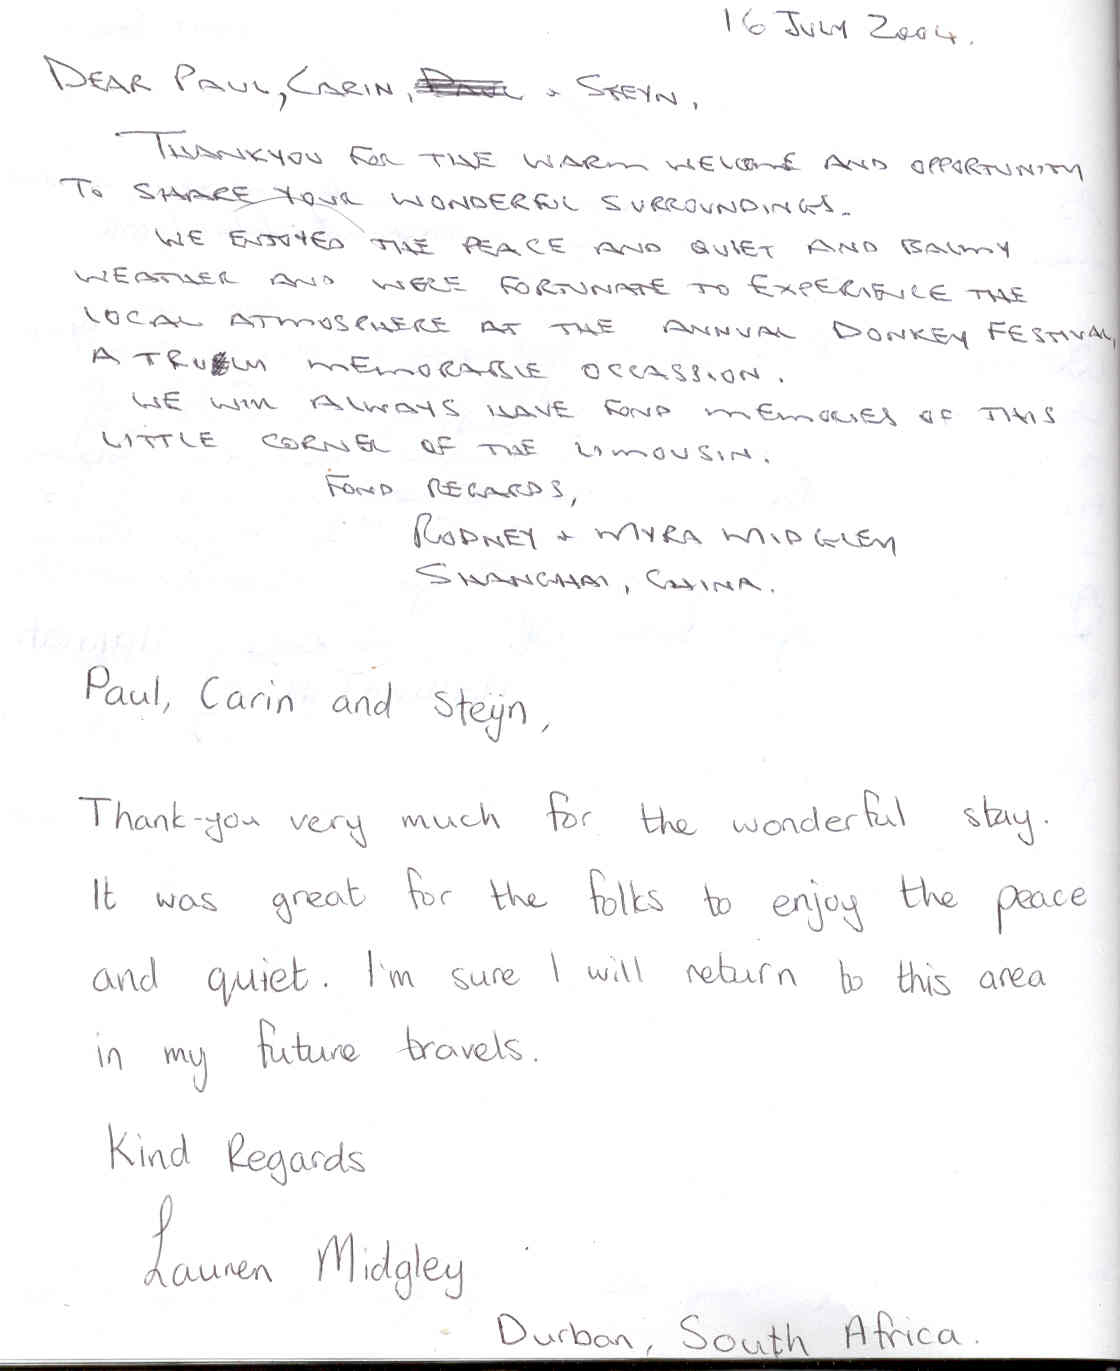 16 JULY 2004.
DEAR PAUL, CARIN, PAUL + STEYN,
THANKYOU FOR THE WARM WELCOME AND OPPORTUNITY
TO SHARE YOUR WONDERFUL SURROUNDINGS.
WE ENJOYED THE PEACE AND QUIET AND BALMY
WEATHER AND WERE FORTUNATE TO EXPERIENCE THE
LOCAL ATMOSPHERE AT THE ANNUAL DONKEY FESTIVAL,
A TRULY MEMORABLE OCCASSION.
WE WILL ALWAYS HAVE FOND MEMORIES OF THIS
LITTLE CORNER OF THE LIMOUSIN.
FOND REGARDS,
RODNEY + MYRA MIDGLEY
SHANGHAI, CHINA.
Paul, Carin and Steijn,
Thank-you very much for the wonderful stay.
It was great for the folks to enjoy the peace
and quiet. I'm sure I will return to this area
in my future travels.
Kind Regards
Lauren Midgley
Durban, South Africa.